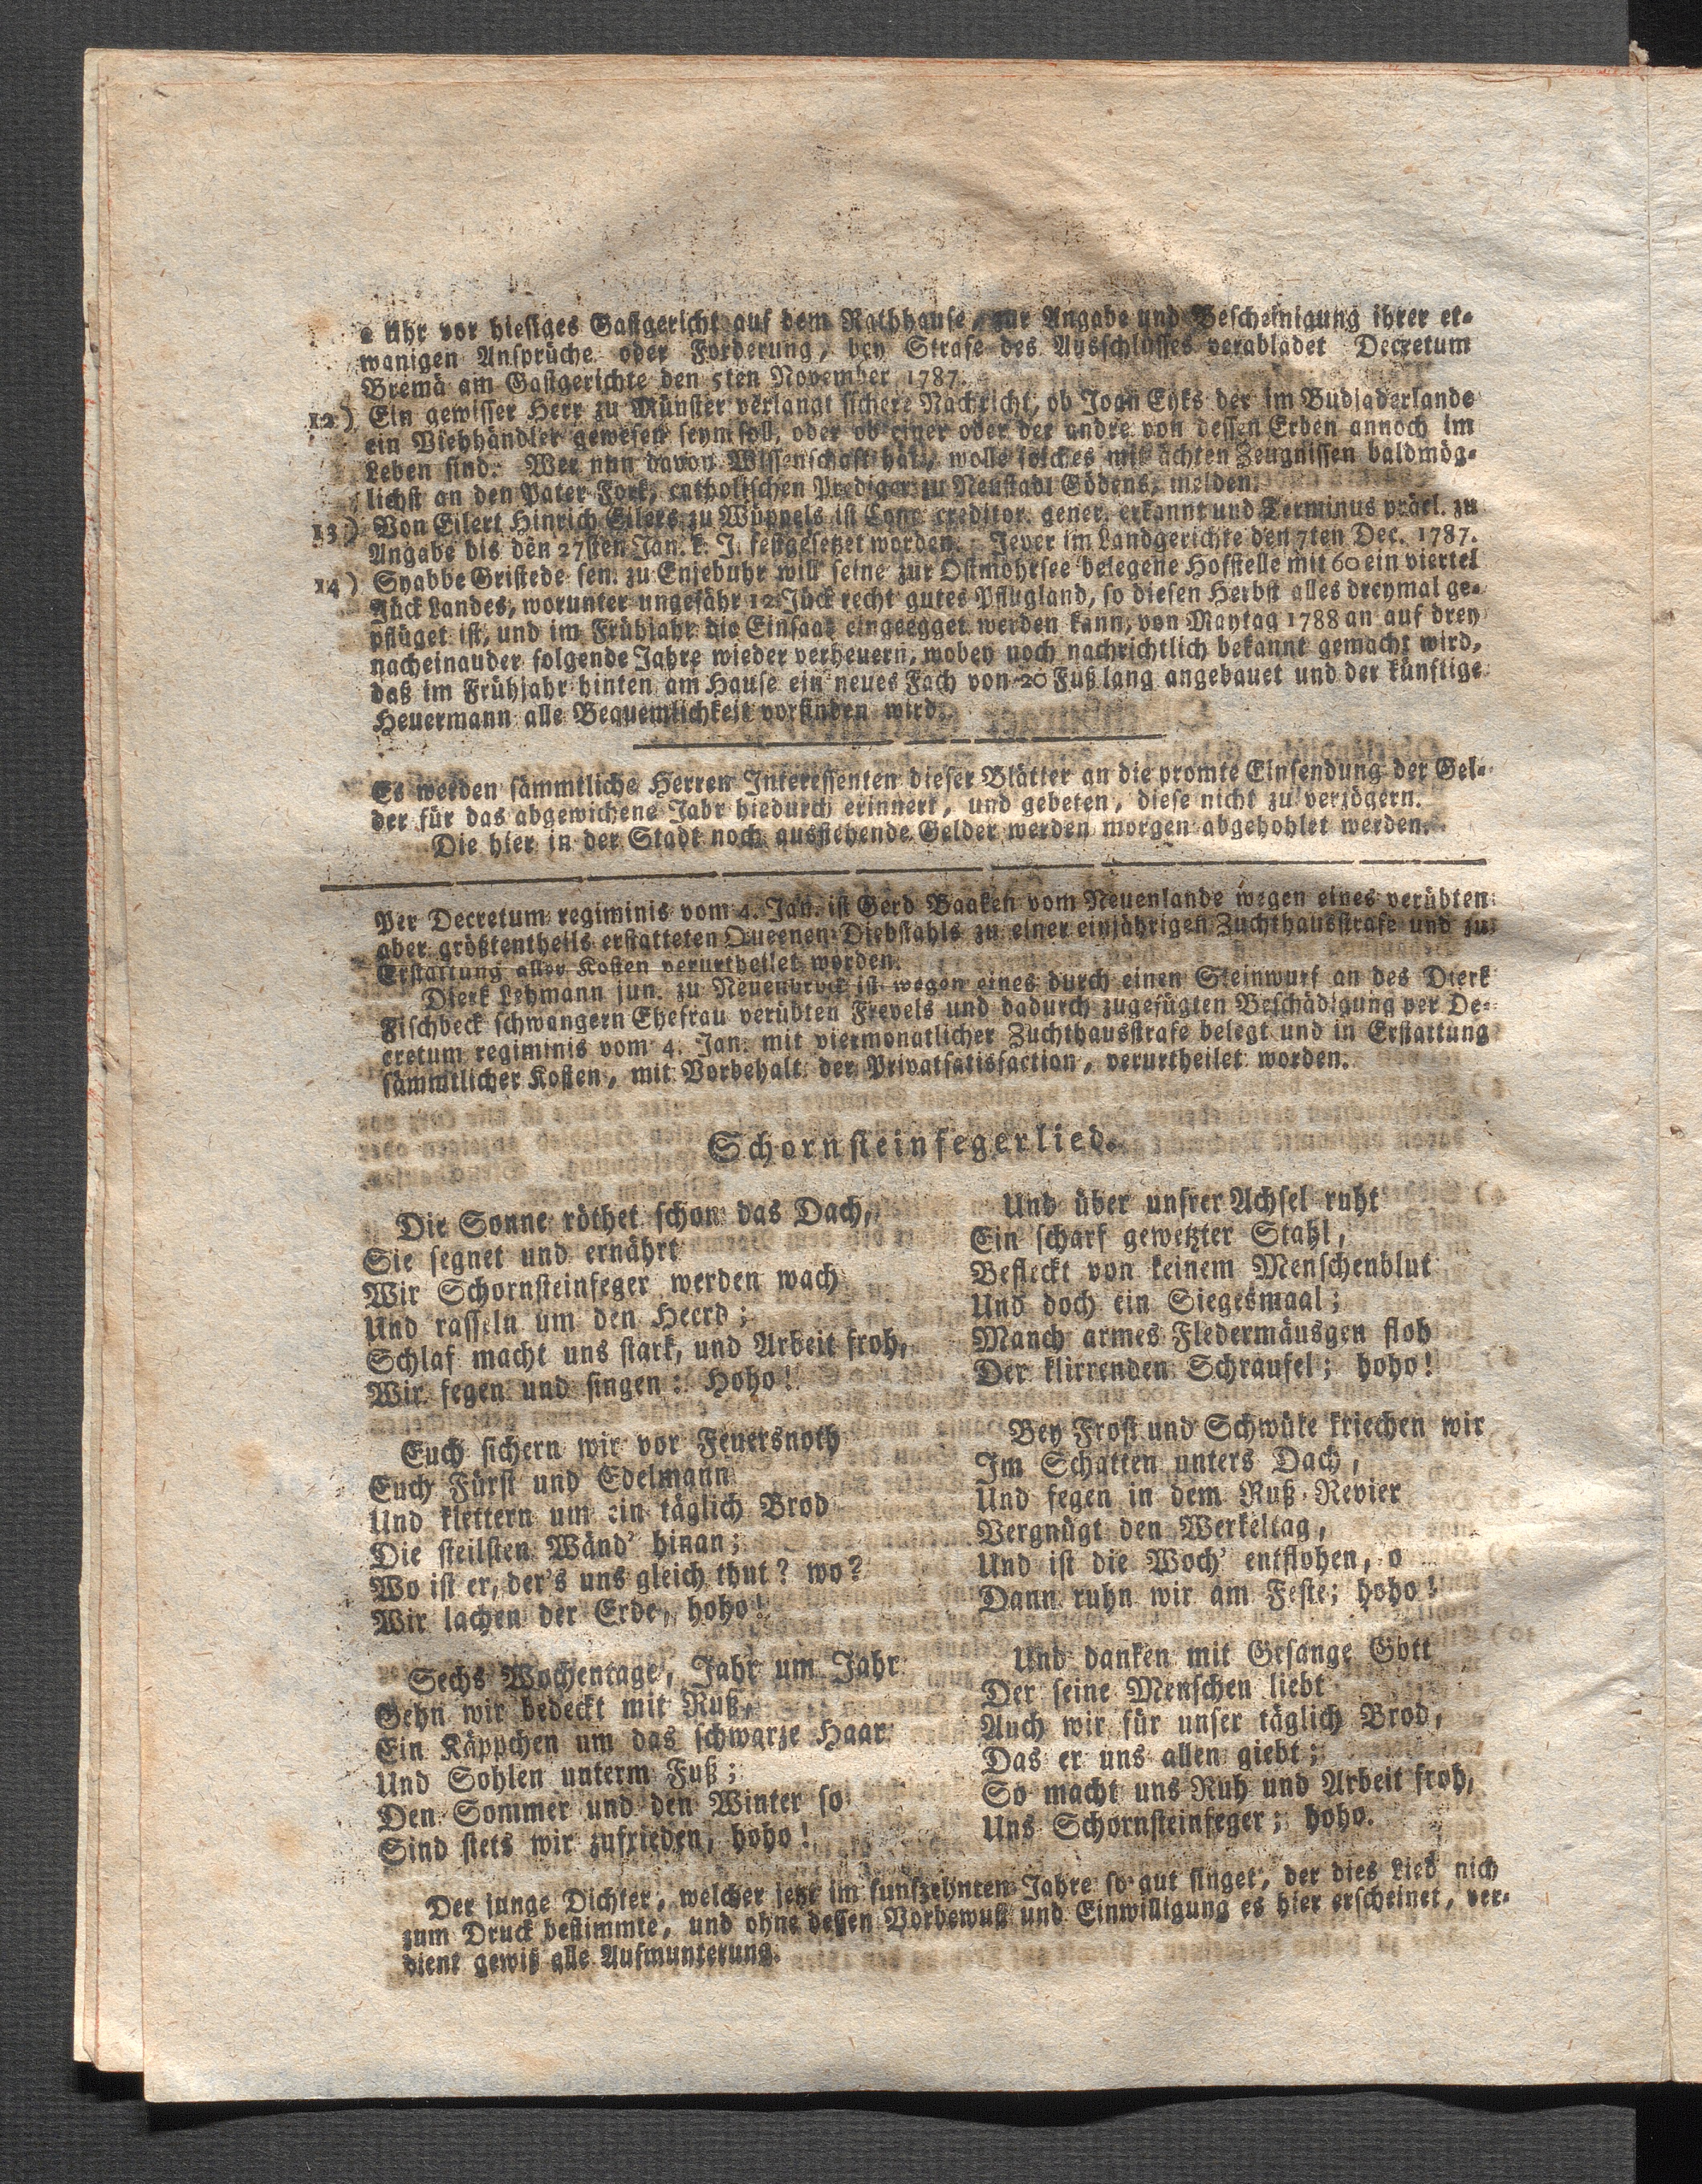 Uhr vor hiesiges Gastgericht auf dem Rathhause, zur Angabe und Bescheinigung ihrer et-
wanigen Ansprüche oder Forderung, bey Strafe des Ausschlusses verabladet Decretum
Bremä am Gastgerichte den 5ten November 1787.
12) Ein gewisser Herr zu Münster verlangt sichere Nachricht, ob Joan Eyks der im Budjaderlande
ein Viehhändler gewesen seyn soll, oder ob einer oder der andre von dessen Erben annoch im
Leben sind. Wer nun davon Wissenschaft hat, wolle solches mit ächten Zeugnissen baldmög-
lichst an den Pater Fork, catholischen Prediger zu Neustadt Gödens, melden.
13) Von Eilert Hinrich Eilers zu Wüppels ist Conv. creditor. gener. erkannt und Terminus präcl. zu
Angabe bis den 27sten Jan. k. J. festgesetzet worden. Jever im Landgerichte den 7ten Dec. 1787.
14) Syabbe Gristede sen. zu Enjebuhr will seine zur Ostmohrsee belegene Hofstelle mit 60 ein viertel
Jück Landes, worunter ungefähr 12 Jück recht gutes Pflugland, so diesen Herbst alles dreymal ge-
pflüget ist, und im Frühjahr die Einsaat eingeegget werden kann, von Maytag 1788 an auf drey
nacheinauder folgende Jahre wieder verheuern, wobey noch nachrichtlich bekannt gemacht wird,
daß im Frühjahr hinten am Hause ein neues Fach von 20 Fuß lang angebauet und der künftige
Heuermann alle Bequemlichkeit vorfinden wird.
Es werden sämmtliche Herren Interessenten dieser Blätter an die promte Einsendung der Gel-
der für das abgewichene Jahr hiedurch erinnert, und gebeten, diese nicht zu verzögern.
Die hier in der Stadt noch ausstehende Gelder werden morgen abgehohlet werden.
Per Decretum regiminis vom 4. Jan. ist Gerd Baaken vom Neuenlande wegen eines verübten
aber größtentheils erstatteten Queenen-Diebstahls zu einer einjährigen Zuchthausstrafe und zu
Erstattung aller Kosten verurtheilet worden.
Dierk Lehmann jun. zu Neuenbrock ist wegen eines durch einen Steinwurf an des Dierk
Fischbeck schwangern Ehefrau verübten Frevels und dadurch zugefügten Beschädigung per De-
cretum regiminis vom 4. Jan. mit viermonatlicher Zuchthausstrafe belegt und in Erstattung
sämmtlicher Kosten, mit Vorbehalt der Privatsatisfaction, verurtheilet worden.
Schornsteinfegerlied.
Die Sonne röthet schon das Dach,
Sie segnet und ernährt
Wir Schornsteinfeger werden wach
Und rasseln um den Heerd;
Schlaf macht uns stark, und Arbeit froh,
Wir fegen und singen: Hoho!
Euch sichern wir vor Feuersnoth
Euch Fürst und Edelmann
Und klettern um ein täglich Brod
Die steilsten Wänd' hinan;
Wo ist er, der's uns gleich thut? wo?
Wir lachen der Erde, hoho!
Sechs Wochentage, Jahr um Jahr
Gehn wir bedeckt mit Ruß,
Ein Käppchen um das schwarze Haar
Und Sohlen unterm Fuß;
Den Sommer und den Winter so
Sind stets wir zufrieden, hoho!
Und über unsrer Achsel ruht
Ein scharf gewetzter Stahl,
Befleckt von keinem Menschenblut
Und doch ein Siegesmaal;
Manch armes Fledermäusgen floh
Der klirrenden Schraufel; hoho!
Bey Frost und Schwüle kriechen wir
Im Schatten unters Dach,
Und fegen in dem Ruß-Revier
Vergnügt den Werkeltag,
Und ist die Woch' entflohen, o
Dann ruhn wir am Feste; hoho!
Und danken mit Gesange Gott
Der seine Menschen liebt
Auch wir für unser täglich Brod,
Das er uns allen giebt;
So macht uns Ruh und Arbeit froh,
Uns Schornsteinfeger; hoho.
Der junge Dichter, welcher jetzt im funfzehnten Jahre so gut singet, der dies Lied nich
zum Druck bestimmte, und ohne dessen Vorbewußt und Einwilligung es hier erscheinet, ver-
dient gewiß alle Aufmunterung.